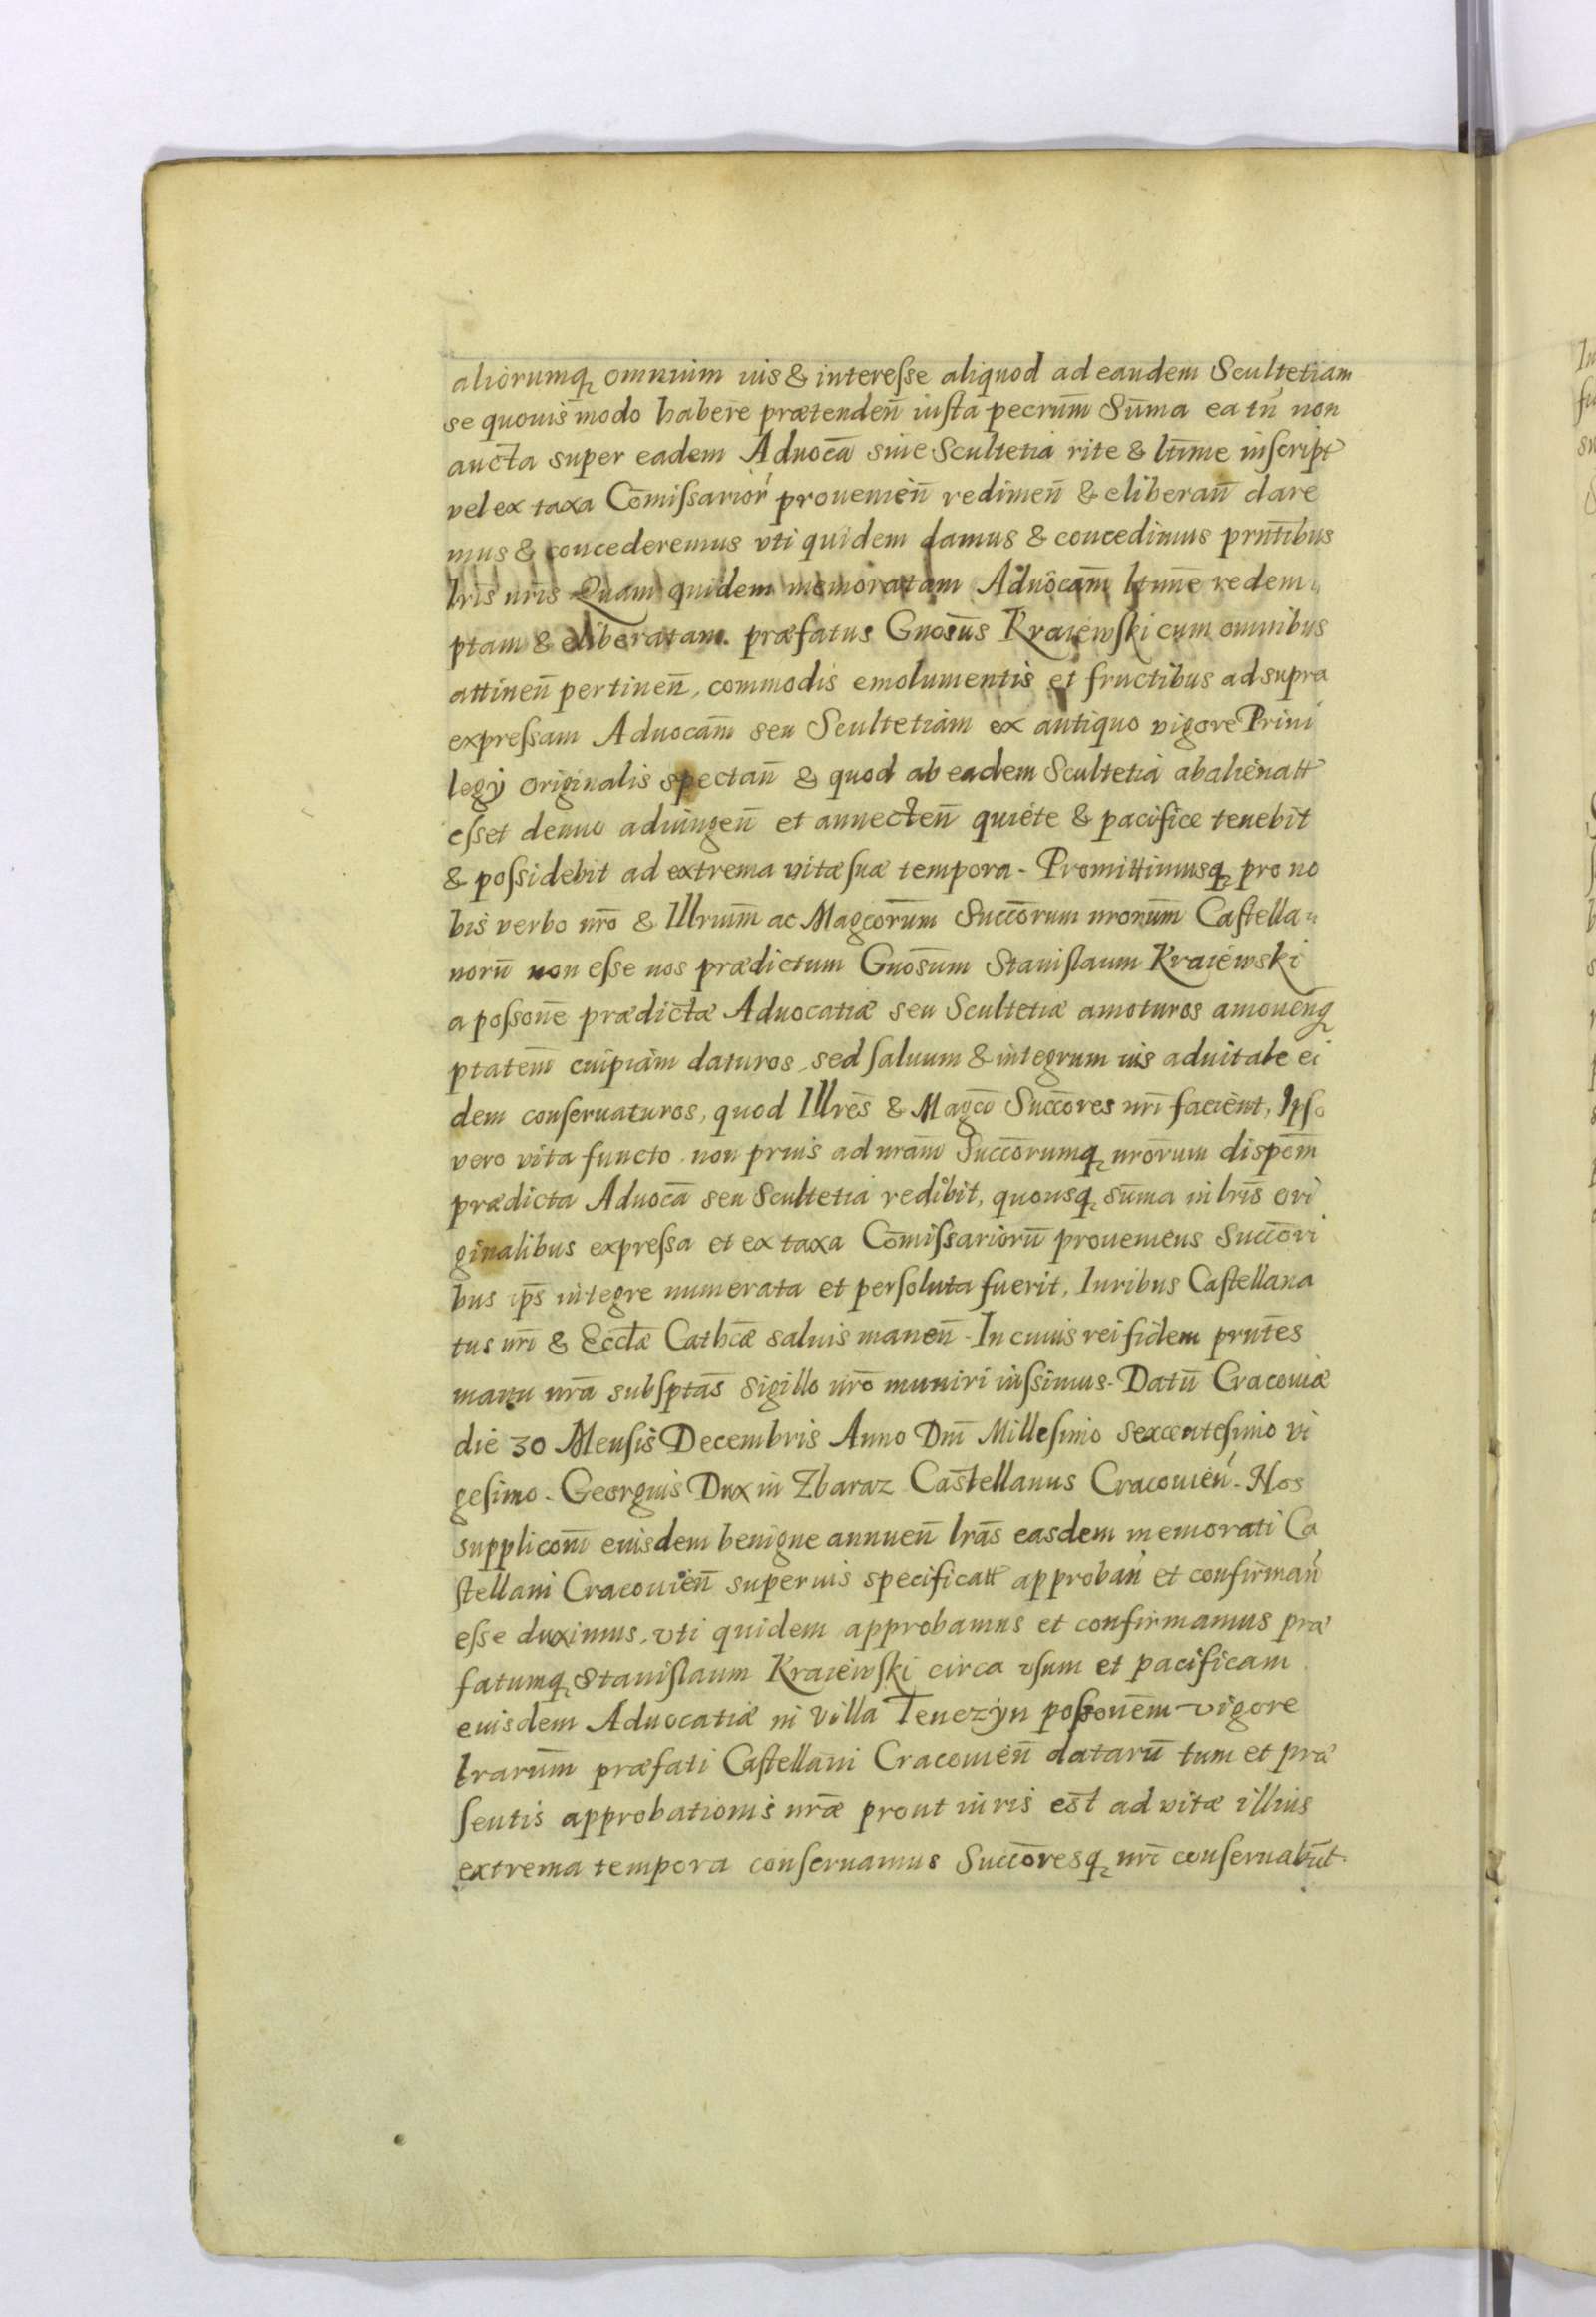 aliorumq omnium ius & interesse aliquod ad eandem Scultetiam
se quouis modo habere prætendeñ iusta pecrum̄ Sum̄a ea tn̄ non
aucta super eadem Aduoca͞ siue Scultetia rite & ltim̄e inscript
vel ex taxa Com̄issarior prouenieñ redimeñ & eliberañ dare
mus & concederemus vti quidem damus & concedimus prnt̄ibus
lris̄ nris̄ Quam quidem memoratam Aduocam̄ ltim̄e redem
ptam & eliberatam. præfatus Gnosus̄ Kraiewski cum omnibus
attineñ pertineñ, commodis emolumentis et fructibus ad supra
expressam Aduocam̄ seu Scultetiam ex antiquo vigore Priui
legÿ originalis spectañ & quod ab eadem Scultetia abalienatt
esset denuo adiungeñ et annecteñ quiete & pacifice tenebit
& possidebit ad extrema vitæ suæ tempora. Promittimusq pro no
bis verbo nro̅ & Illrium̄ ac Magcorum̄ Succorum̄ nronum̄ Castella
noru̅ non esse nos prædictum Gnosum̄ Stanislaum Kraiewski
a possone̅ prædictæ Aduocatiæ seu Scultetiæ amoturos amouenq
ptatem̄ cuipiam daturos, sed saluum & integrum ius aduitale ei
dem conseruaturos, quod Illres̄ & Magci̅ Succores̄ nri̅ facient, Ipso
vero vita functo. non prius ad nram̄ Succorumq̄ nrorum̄ dispom̄
prædicta Aduoca͞ seu Scultetia redibit, quousq sum̄a in lris̄ ori
ginalibus expressa et ex taxa Com̄issarioru̅ proueniens Succori̅
bus ips̄ integre numerata et persoluta fuerit, Iuribus Castellana
tus nri̅ & Eccl̄æ Cathc̄æ saluis maneñ. In cuius rei fidem prntes̄
manu nra̅ subsptas̄ sigillo nro̅ muniri iussimus. Datu̅ Cracouiæ
die 30 Mensis Decembris Anno Dni̅ Millesimo sexcentesimo vi
gesimo. Georgius Dux in Zbaraz Castellanus Cracouień. Nos
supplicom̄ eiusdem benigne annueñ lras̄ easdem memorati Ca
stellani Cracouieñ superius specificatt approbań et confirmań
esse duximus, vti quidem approbamus et confirmamus præ
fatumq Stanislaum Kraiewski circa vsum et pacificam
eiusdem Aduocatiæ in villa Tenezÿn possonem̄ vigore
lrarum̄ præfati Castellani Cracouieñ dataru̅ tum et præ
sentis approbationis nræ̅ prout iuris est ad vitæ illius
extrema tempora conseruamus Succoresq̄ nri̅ conseruabut̅.